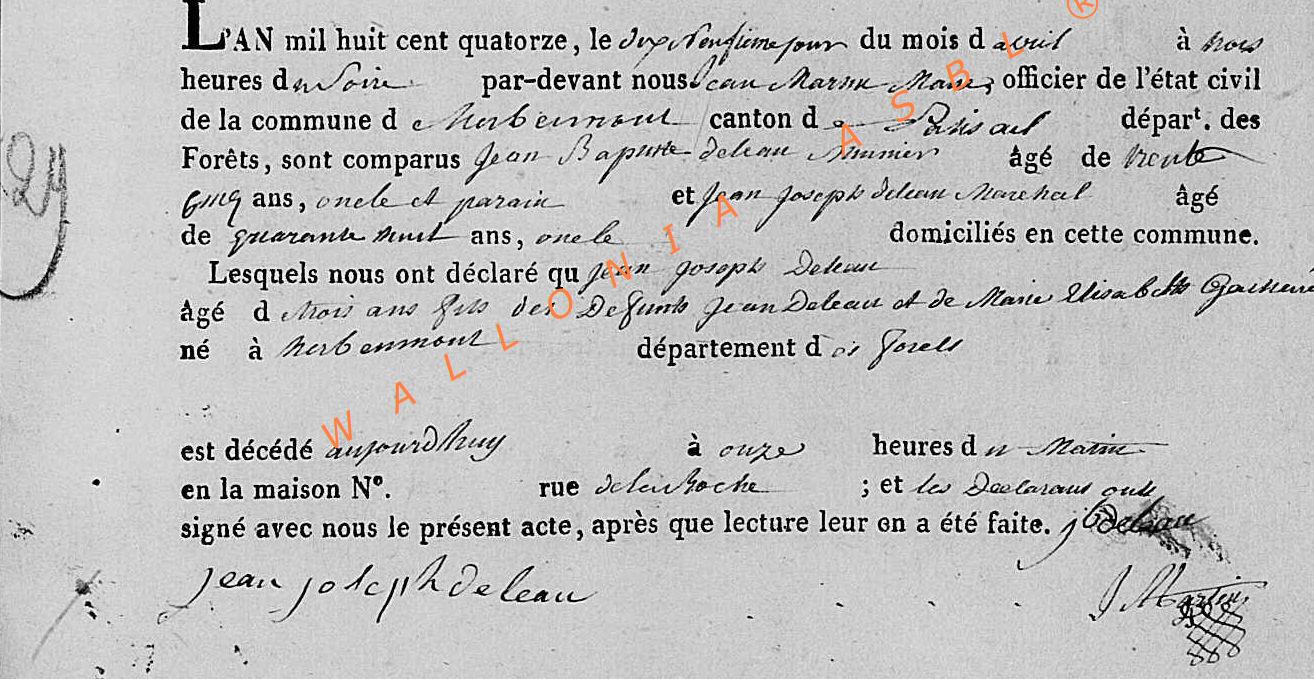 L'AN mil huit cent quatorze, le dix Neufieme jour du mois d avril à trois
heures du Soire par-devant nous Jean Martin Maire, officier de l'état civil
de la commune d e herbeumont canton d e Paliseul départ. des
Forêts, sont comparus Jean Baptiste deleau âgé de trente
cinq ans, oncle et parain et Jean Joseph deleau Marechal âgé
de quarante huit ans, oncle domiciliés en cette commune.
Lesquels nous ont déclaré qu Jean Joseph Deleau
âgé d e trois ans fils des Defunts Jean Deleau et de Marie Elisabeth
né à herbeumont département d es forets
est décédé aujourdhuy à onze heures d u Matin
en la maison N°. rue de la Roche ; et les Declarans ont
signé avec nous le présent acte, après que lecture leur en a été faite. jbdeleau
jean joseph deleau J Martin
29
WALLONIA ASBL ®